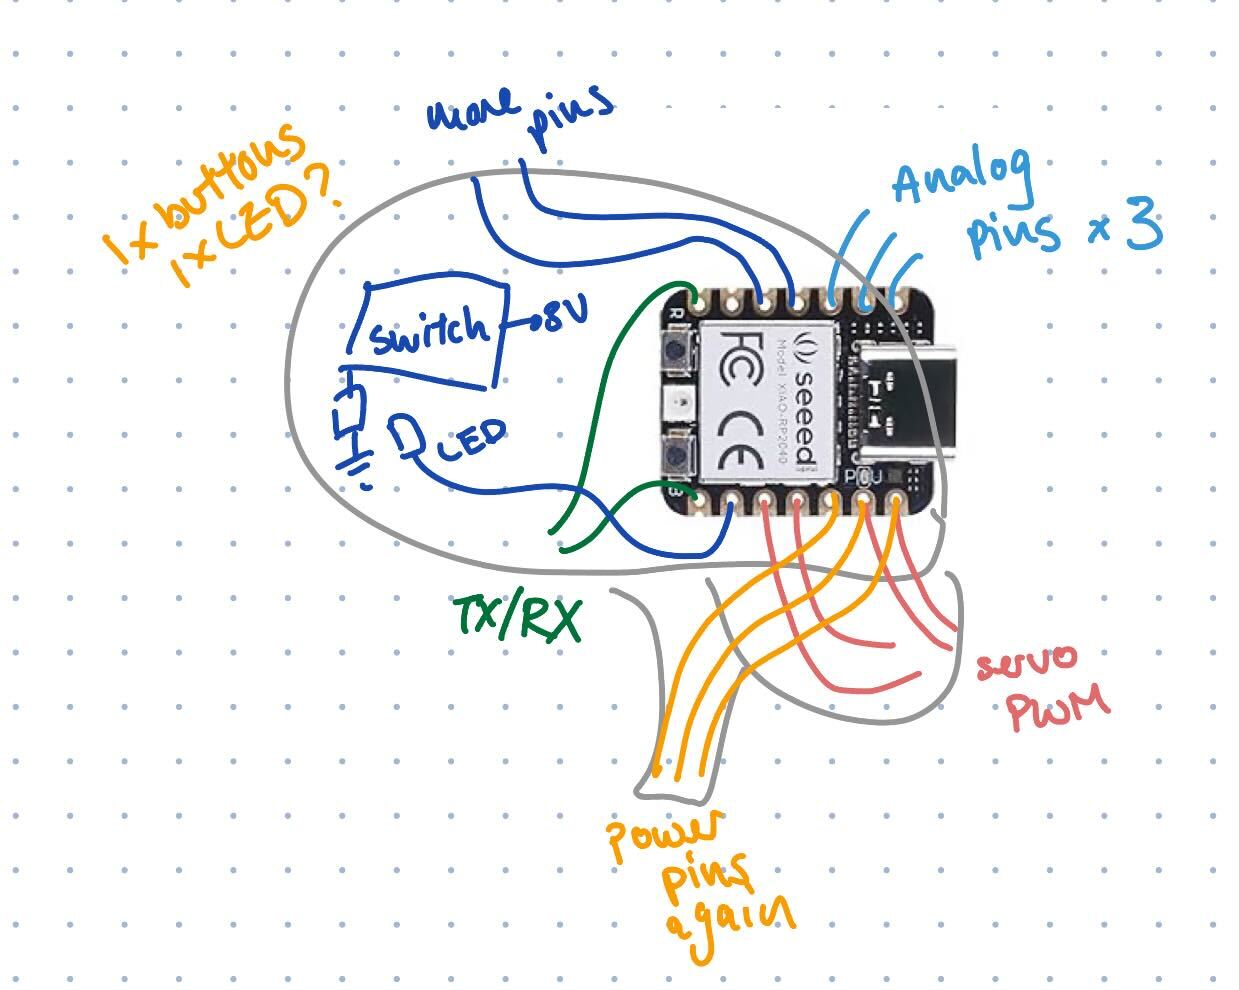 more pins
1x buttons
1x LED?
Analog
pins x 3
switch
8V
LED
R
FC CE
seeed
Model XIAO-RP2040
B
TX/RX
servo
PWM
power
pins
again